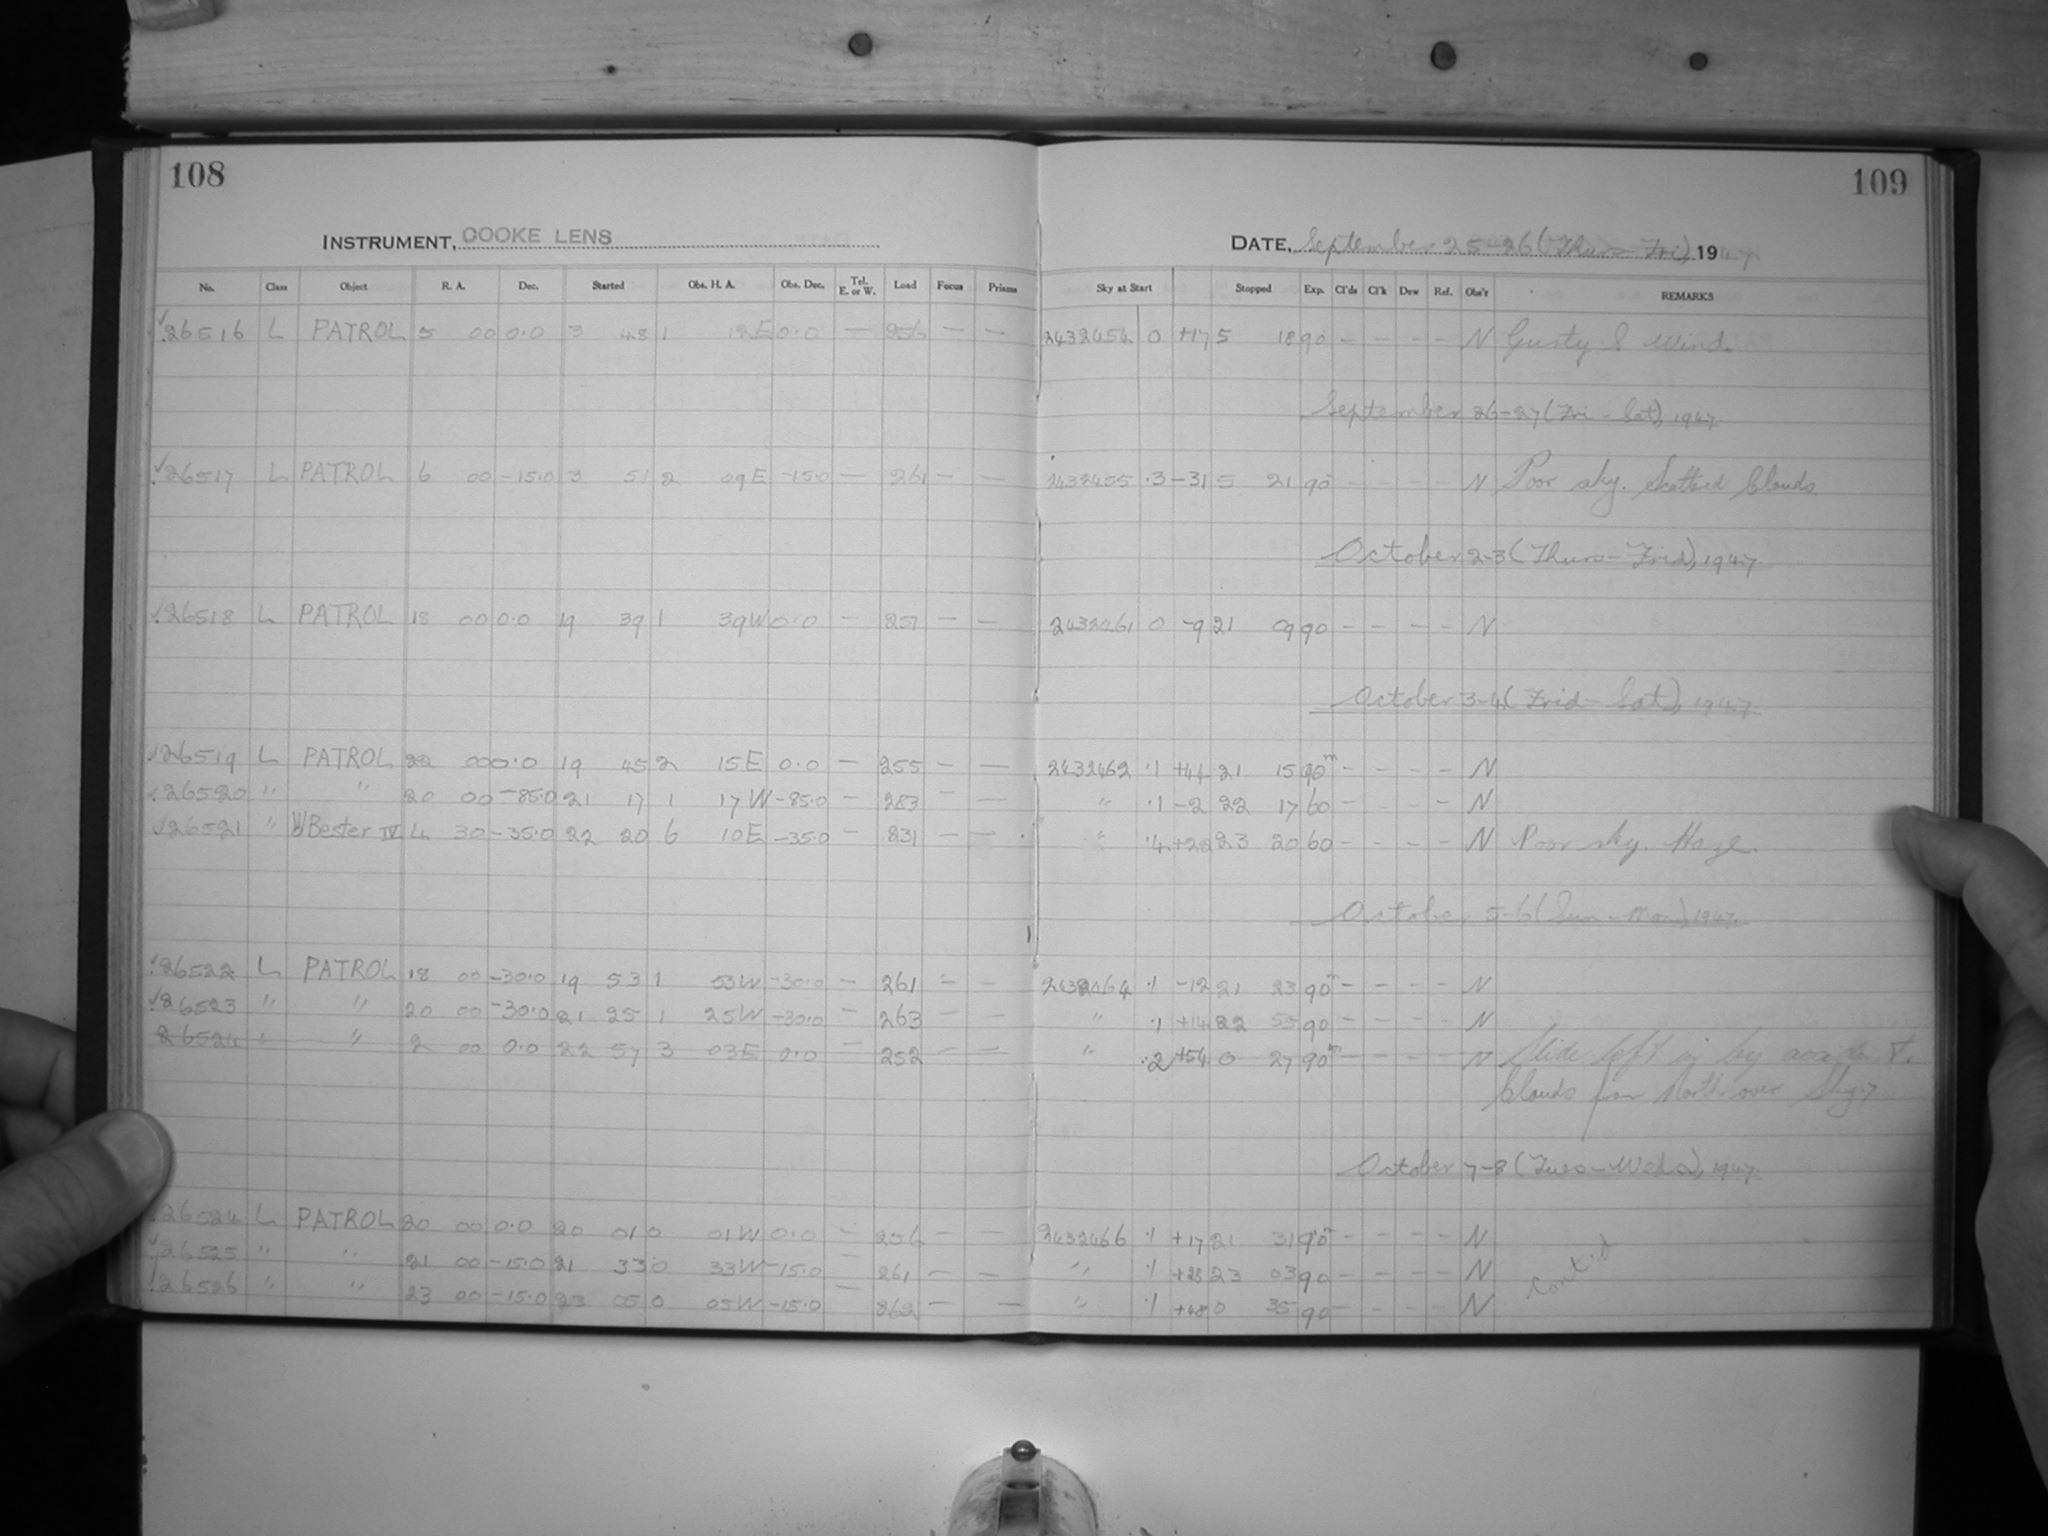 108
109
INSTRUMENT, COOKE LENS
DATE, September 25-26 (Thurs-Fri), 1947
No. Class Object R. A. Dec. Started Obs. H. A. Obs. Dec. Tel. E. or W. Load Focus Prisms Sky at Start Stopped Exp. Cl'ds Cl'k Dew Ref. Obs'r REMARKS
26516 L PATROL 5 00 0.0 3 48 1 12E 0.0 — 256 — — 2432454 0 +17 5 18 90 - - - - N Gusty S Wind.
September 26-27 (Fri - Sat), 1947
26517 L PATROL 6 00 -15.0 3 51 2 09E -15.0 — 261 — — 2432455 .3 -31 5 21 90 - - - - N Poor sky. Scattred Clouds.
October 2-3 (Thurs-Frid), 1947
26518 L PATROL 18 00 0.0 19 39 1 39W 0.0 — 257 — — 2432461 0 -9 21 09 90 - - - - N
October 3-4 (Frid- Sat), 1947
26519 L PATROL 22 00 0.0 19 45 2 15E 0.0 — 255 — — 2432462 .1 +44 21 15 90m - - - - N
26520 " " 20 00 -85.0 21 17 1 17W -85.0 — 283 — — " .1 -2 22 17 60 - - - - N
26521 " Bester IV 4 30 -35.0 22 20 6 10E -35.0 — 231 — — " .4 +22 23 20 60 - - - - N Poor sky. Haze.
October 5-6 (Sun-Mon), 1947
26522 L PATROL 18 00 -30.0 19 53 1 53W -30.0 — 261 — — 2432464 .1 -12 21 23 90m - - - - N
26523 " " 20 00 -30.0 21 25 1 25W -30.0 — 263 — — " .1 +14 22 55 90 - - - - N
26524 " " 2 00 0.0 22 57 3 03E 0.0 — 252 — — " .2 +54 0 27 90m - - - - N Slide left in by accident.
Clouds from North over Sky.
October 7-8 (Tues-Weds), 1947
26524 L PATROL 20 00 0.0 20 01 0 01W 0.0 — 256 — — 2432466 .1 +17 21 31 90m - - - - N
26525 " " 21 00 -15.0 21 33 0 33W -15.0 — 261 — — " .1 +28 23 03 90 - - - - N
26526 " " 23 00 -15.0 23 05 0 05W -15.0 — 262 — — " .1 +48 0 35 90 - - - - N
Cont'd